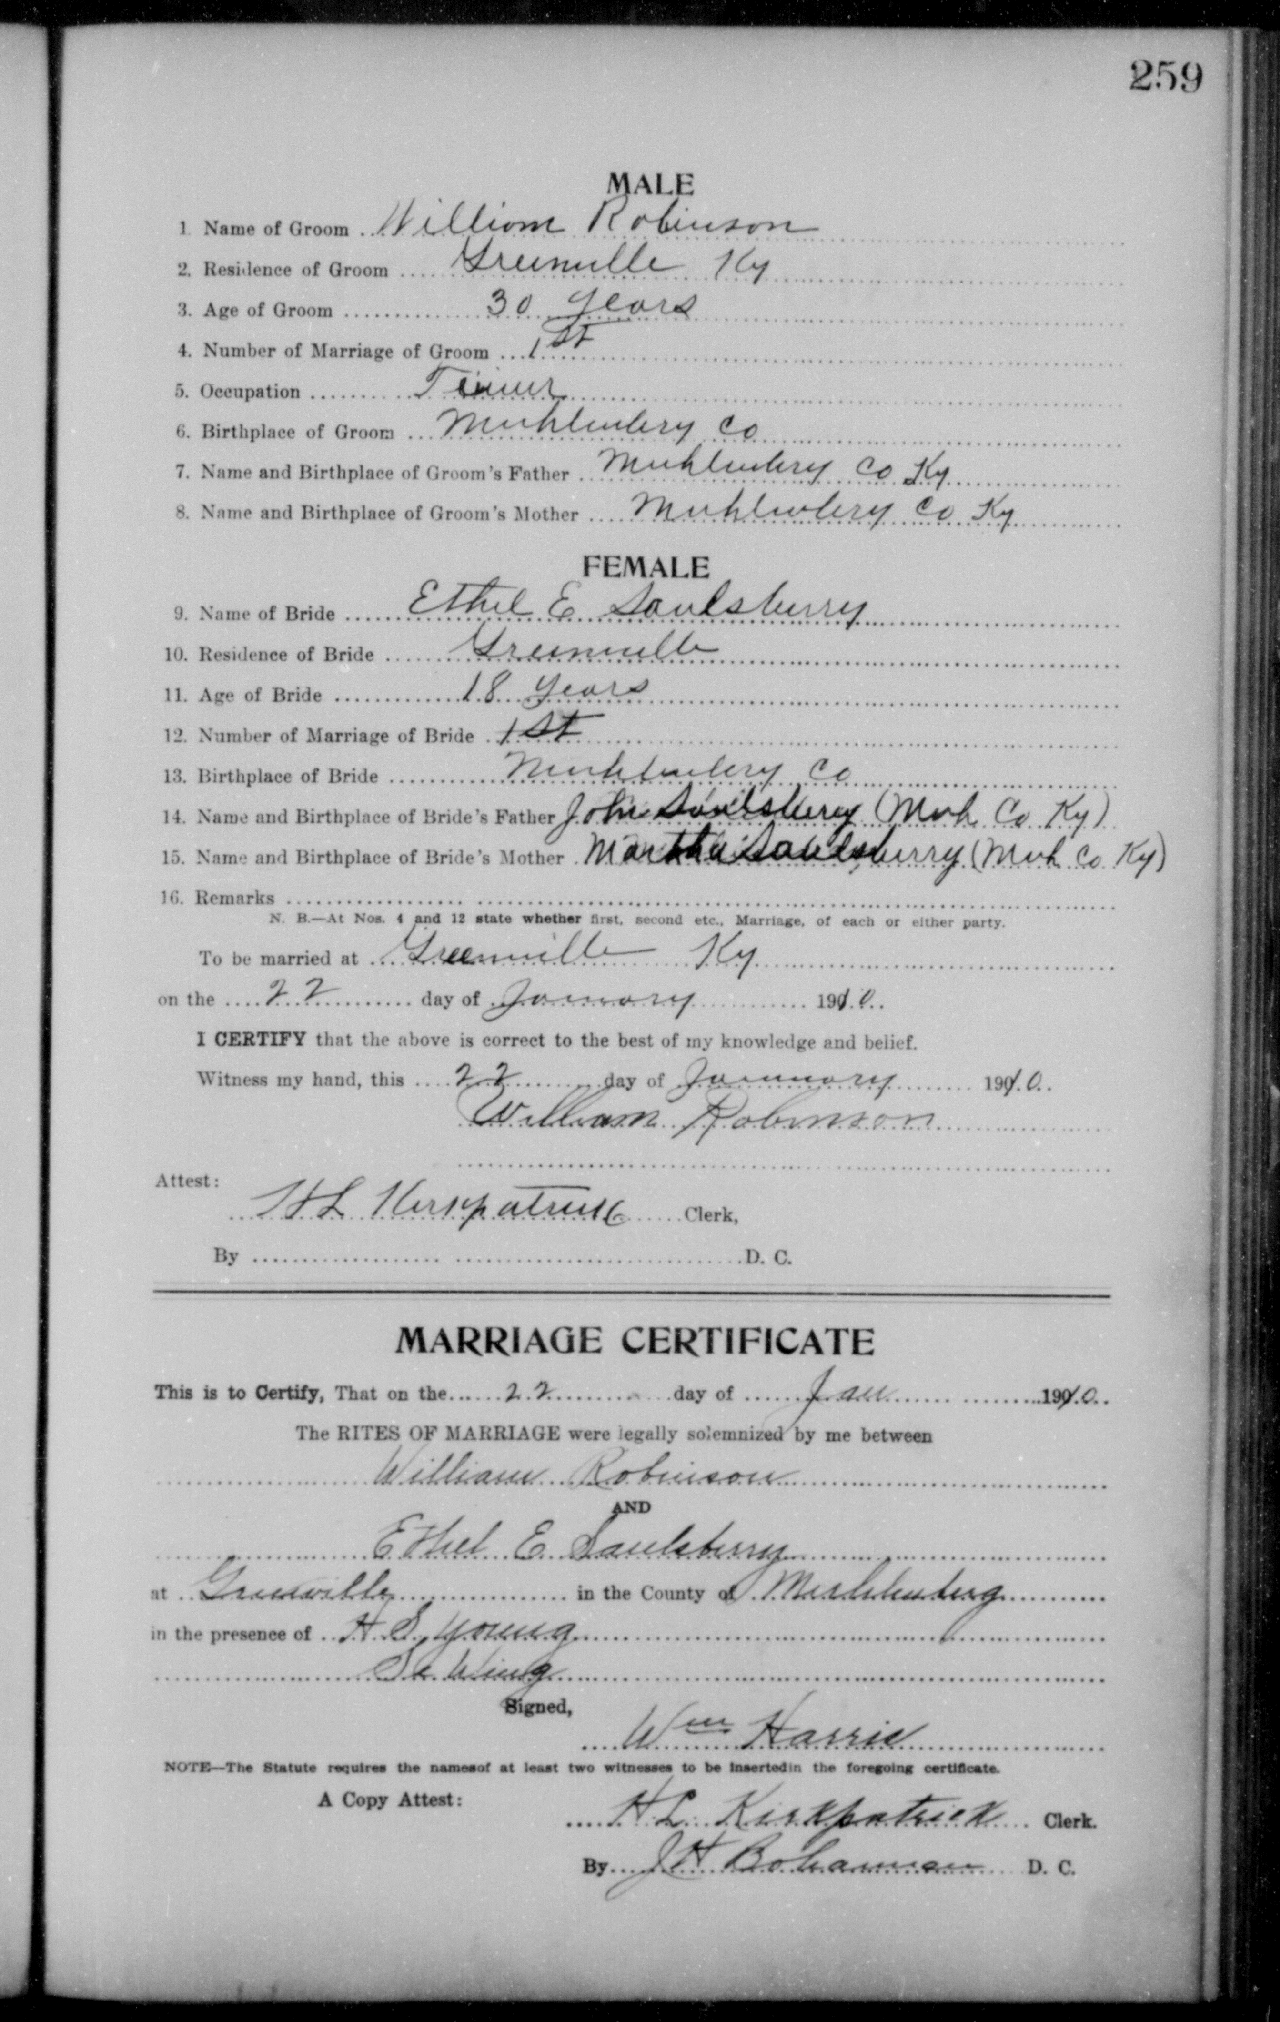 259
MALE
1. Name of Groom William Robinson
2. Residence of Groom Greenville Ky
3. Age of Groom 30 years
4. Number of Marriage of Groom 1st
5. Occupation
6. Birthplace of Groom Muhlenberg Co
7. Name and Birthplace of Groom's Father Muhlenberg Co Ky
8. Name and Birthplace of Groom's Mother Muhlenberg Co Ky
FEMALE
9. Name of Bride Ethel E Saulsberry
10. Residence of Bride Greenville
11. Age of Bride 18 years
12. Number of Marriage of Bride 1st
13. Birthplace of Bride Muhlenberg Co
14. Name and Birthplace of Bride's Father John Saulsberry (Muh Co Ky)
15. Name and Birthplace of Bride's Mother Martha Saulsberry (Muh Co Ky)
16. Remarks
N. B.—At Nos. 4 and 12 state whether first, second etc., Marriage, of each or either party.
To be married at Greenville Ky
on the 22 day of January 1910.
I CERTIFY that the above is correct to the best of my knowledge and belief.
Witness my hand, this 22 day of January 1910.
William Robinson
Attest:
H L Kirkpatrick Clerk,
By D. C.
MARRIAGE CERTIFICATE
This is to Certify, That on the 22 day of Jan 1910.
The RITES OF MARRIAGE were legally solemnized by me between
William Robinson
AND
Ethel E Saulsberry
at Greenville in the County of Muhlenberg
in the presence of H. S. Young
Wing
Signed,
Wm Harris
NOTE—The Statute requires the namesof at least two witnesses to be insertedin the foregoing certificate.
A Copy Attest:
H L Kirkpatrick Clerk.
By J H Bohannon D. C.